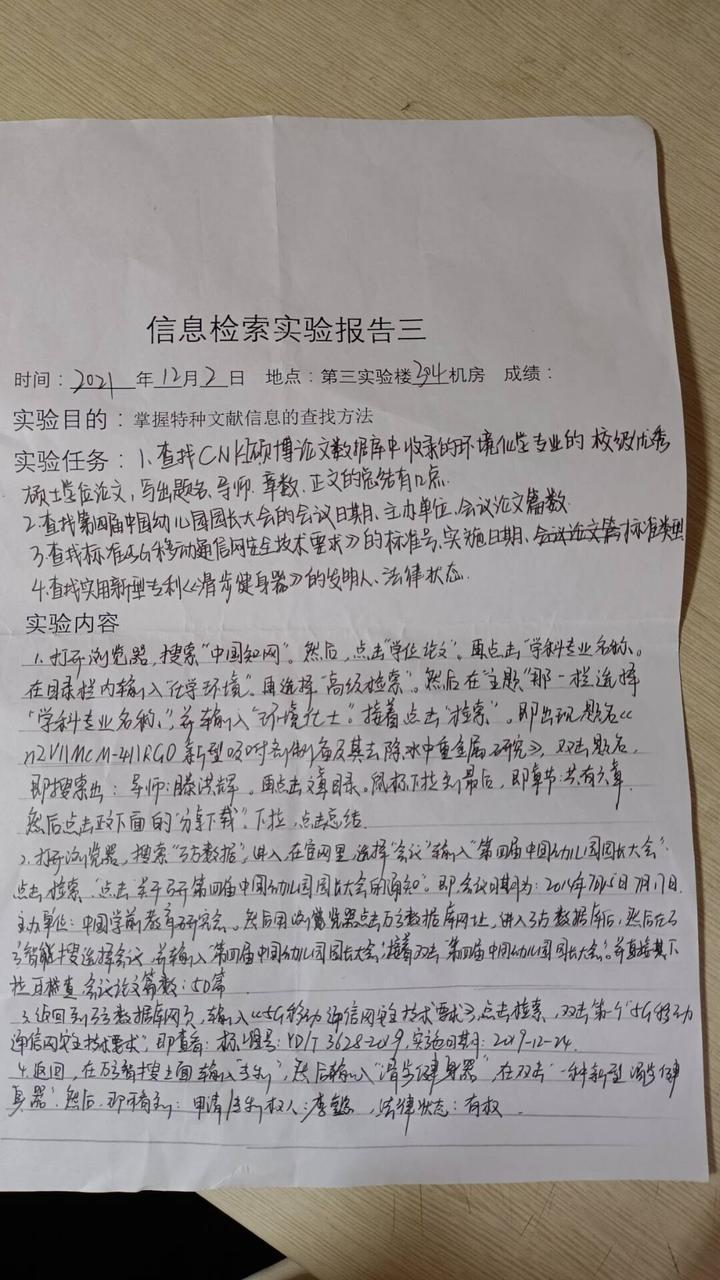 信息检索实验报告三
时间：2021年12月2日 地点：第三实验楼204机房 成绩：
实验目的：掌握特种文献信息的查找方法
实验任务：1、查找CNKI硕博论文数据库中收录的环境化学专业的校级优秀
硕士学位论文，写出题名、导师、章数、正文的总结有几点.
2.查找第四届中国幼儿园园长大会的会议日期、主办单位、会议论文篇数.
3.查找标准《5G移动通信网安全技术要求》的标准号、实施日期、会议论文篇标准类型
4.查找实用新型专利《滑步健身器》的发明人、法律状态.
实验内容
1.打开浏览器，搜索“中国知网”。然后，点击“学位论文”。再点击“学科专业名称、。
在目录栏内输入“化学环境”。再选择“高级检索”。然后在“主题”那一栏选择
“学科专业名称、”，并输入“环境化士”。接着点击“检索”。即出现题名《
nZVI/MCM-41/RGO新型吸附剂制备及其去除水中重金属研究》，双击题名，
即搜索出：导师：滕洪辉。再点击文章目录。鼠标下拉到最后，即章节：共有六章.
然后点击正文下面的“分章下载”。下拉，点击总结.
2.打开浏览器，搜索“万方数据”，进入，在官网里，选择“会议”输入“第四届中国幼儿园园长大会”.
点击检索.点击“关于召开第四届中国幼儿园园长大会的通知”。即，会议日期为：2014年7月15日7月17日.
主办单位：中国学前教育研究会。然后用浏览器点击万方数据库网址，进入万方数据库后，然后在万
方智能搜选择会议，并输入“第四届中国幼儿园园长大会”，接着双击“第四届中国幼儿园园长大会”。并直接其下
拉可检查，会议论文篇数：50篇
3.返回到万方数据库网页，输入《5G移动通信网安全技术要求》，点击检索，双击第一个“5G移动
通信网安全技术要求”，即查看：标准号：YD/T 3628-2019，实施日期：2019-12-24.
4.返回，在万方智搜上面输入“专利”，然后输入“滑步健身器”，在双击“一种新型滑步健
身器”.然后.即可看到：申请/专利权人：李，法律状态：有权.